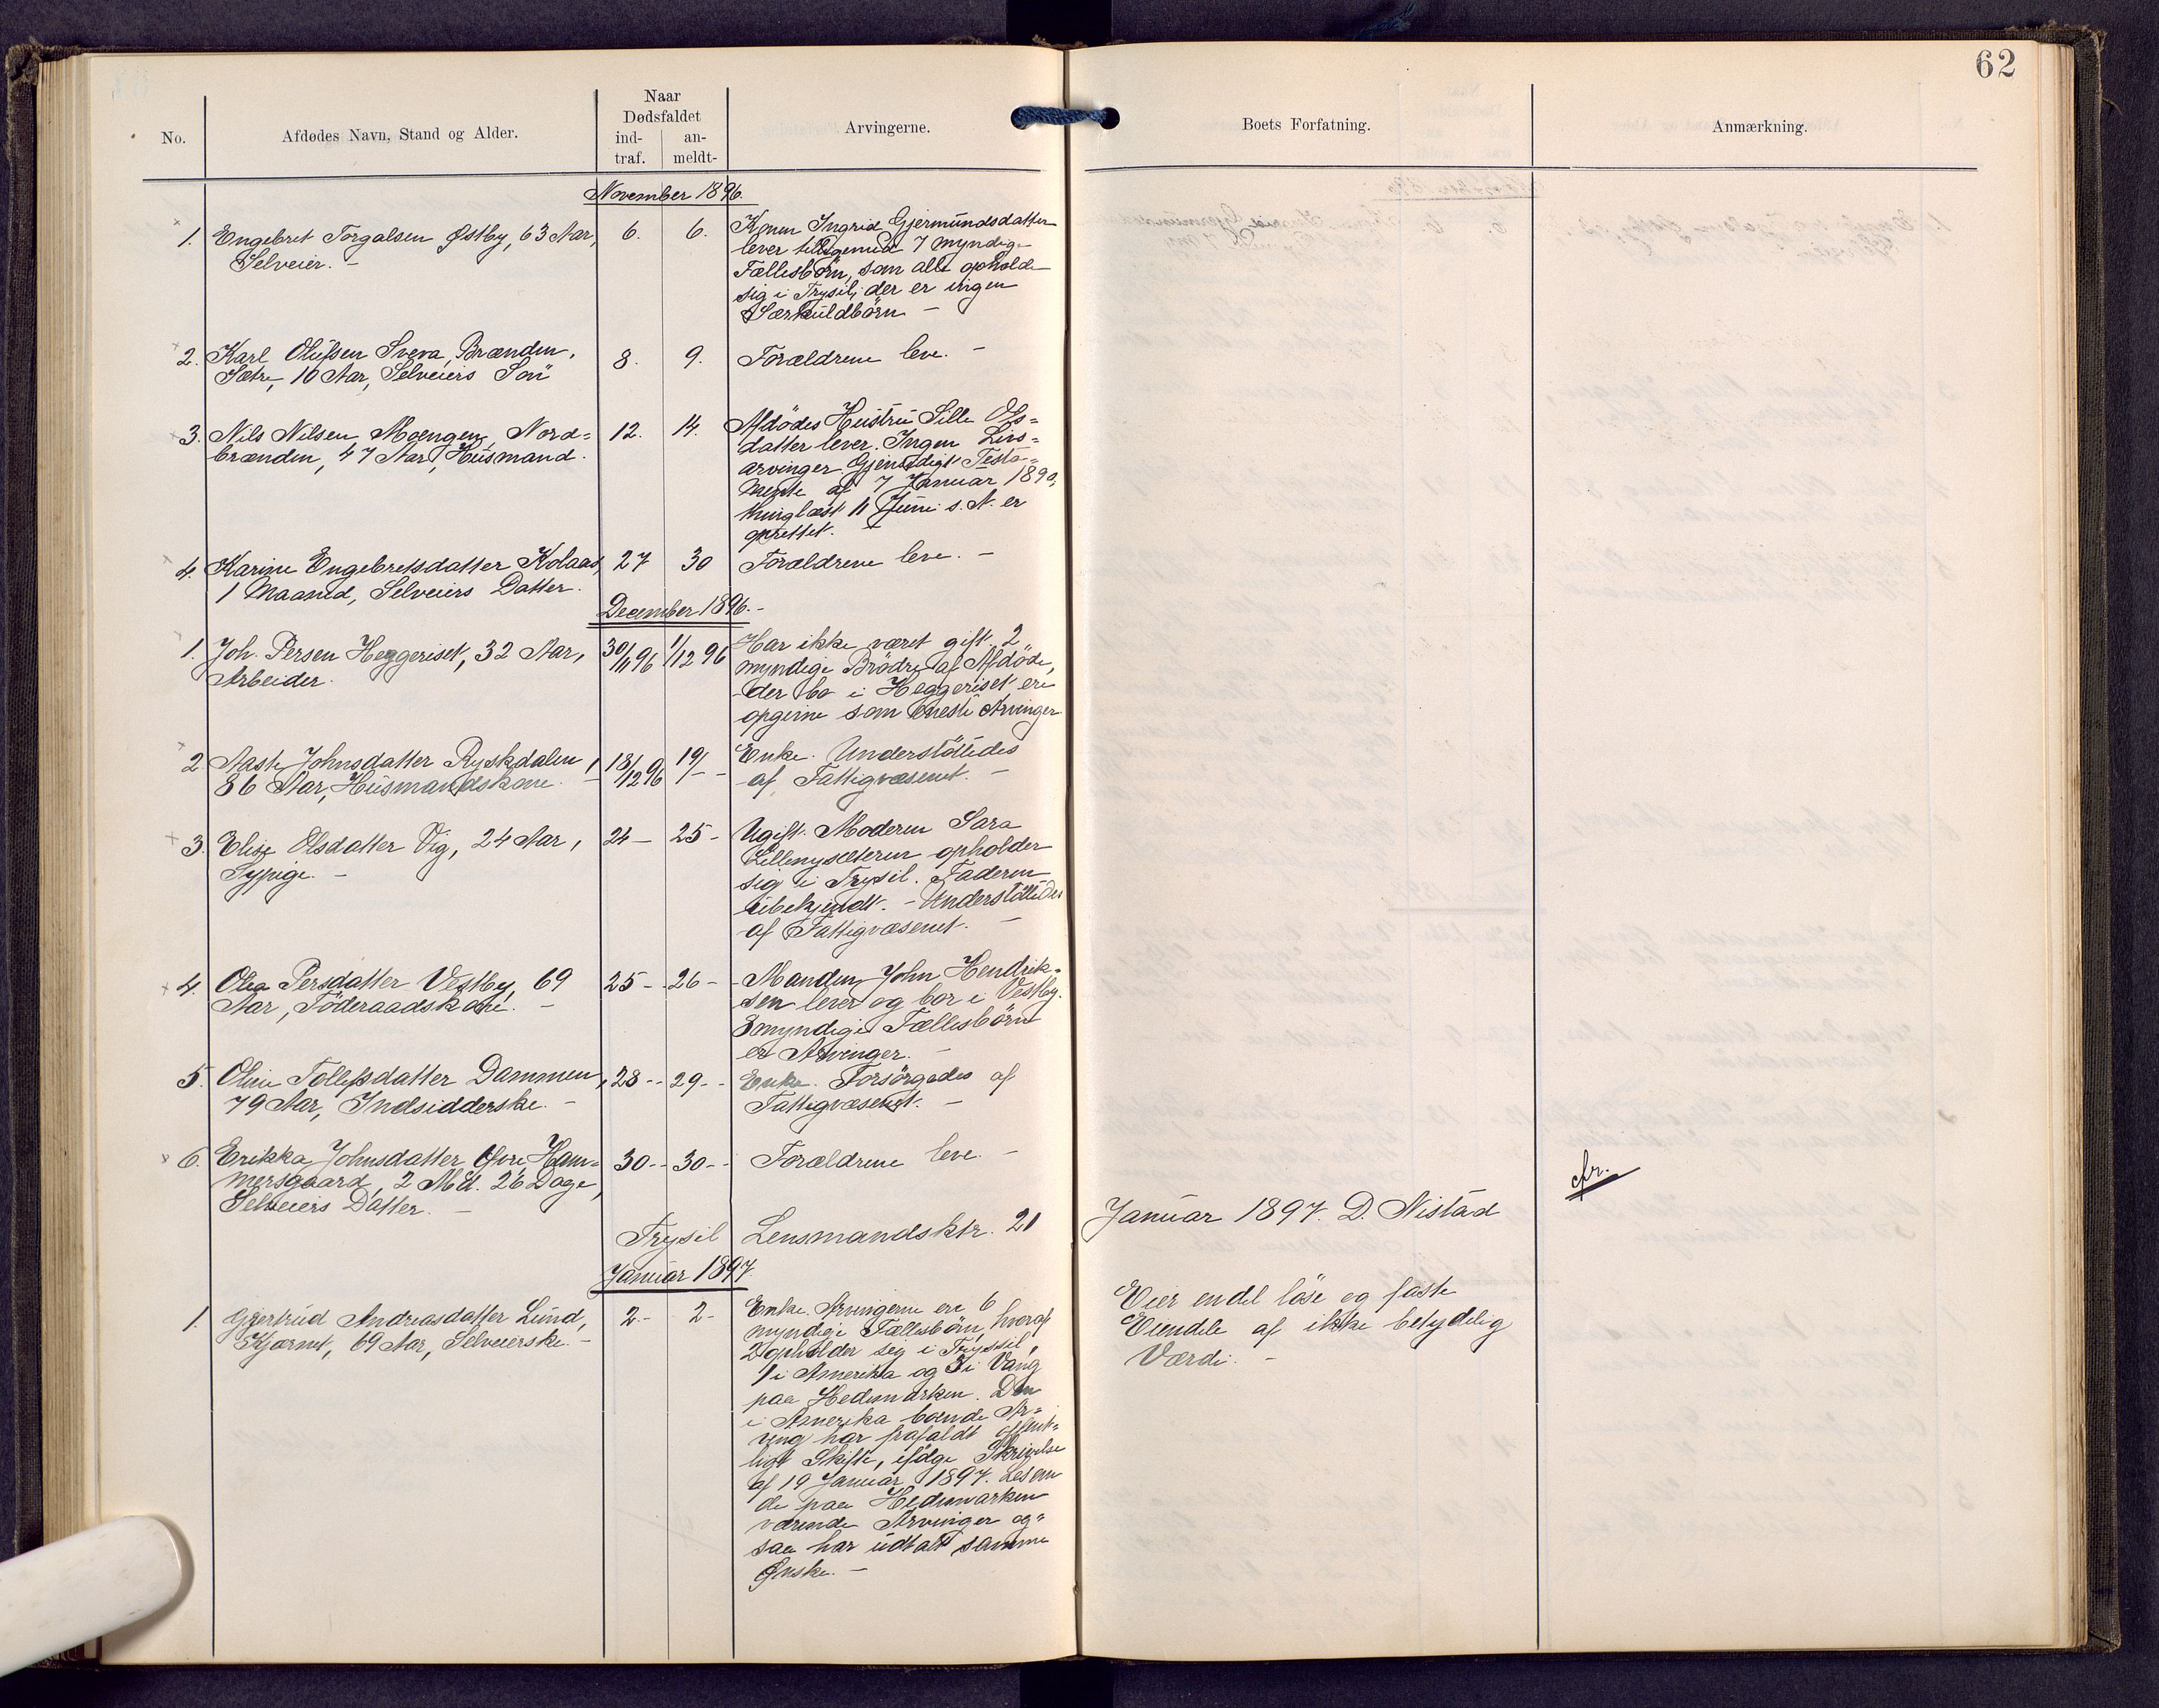 62
No.
Afdødes Navn, Stand og Alder.
Naar
Dødsfaldet
ind-
traf.
an-
meldt-
Arvingerne.
Boets Forfatning.
Anmærkning.
November 1896.
1. Engebret Torgalsen Østby, 63 Aar, 6. 6. Konen Ingrid Gjermundsdatter
Selveier. - lever tilligemed 7 myndige
Fællesbörn, som alle opholde
sig i Trysil; der er ingen
Særkuldbörn -
2. Karl Olufsen Sveva, Brænden, 8. 9. Forældrene leve. -
Sætre, 10 Aar, Selveiers Sön
3. Nils Nilsen Moengen, Nord= 12. 14. Afdödes Hustru Sille Ols=
brænden, 47 Aar, Husmand. datter lever. Ingen Livs=
arvinger. Gjensidigt Testa=
mente af 7 Januar 1890,
thinglæst 11 Juni s. A. er
oprettet. -
4. Karine Engebretsdatter Kolaas, 27 30 Forældrene leve. -
1 Maaned, Selveiers Datter.
December 1896. -
1. Joh. Persen Heggeriset, 32 Aar, 30/11 96 1/12 96 Har ikke været gift. 2
Arbeider. myndige Brödre af Afdöde,
der bo i Heggeriset ere
opgivne som eneste Arvinger
2 Aaste Johnsdatter Ryskdalen, 18/12 96 19/- - Enke. Understöttedes
86 Aar, Husmandskone. - af Fattigvæsenet. -
3. Elise Olsdatter Vig, 24 Aar, 24 - 25 - Ugift. Moderen Sara
Sypige. - Lillenysæteren opholder
sig i Trysil. Faderen
ubekjendt. - Understöttedes
af Fattigvæsenet. -
4. Olea Persdatter Vestby, 69 25 - - 26 - Manden John Hendrik=
Aar, Föderaadskone. - sen lever og bor i Vestby.
3 myndige Fællesbörn
er Arvinger. -
5. Oline Tollefsdatter Dammen, 28 - - 29 - - Enke. Forsörgedes af
79 Aar, Indsidderske. - Fattigvæsenet. -
6. Erikka Johnsdatter Øvre Ham= 30 - - 30 - - Forældrene leve. -
mersgaard, 2 Md. 26 Dage,
Selveiers Datter. -
Trysil Lensmandsktr. 21 Januar 1897. D. Nistad
Januar 1897.
1. Gjertrud Andreasdatter Lund, 2. - 2 - Enke. Arvingerne ere 6
Kjærnet, 69 Aar, Selveierske. - myndige Fællesbörn, hvoraf
2 opholder seg i Tryssil,
1 i Amerika og 3 i Vang
paa Hedemarken. Den
i Amerika boende Ar=
ving har frafaldt offent=
ligt Skifte, ifölge Skrivelse
af 19 Januar 1897.
de paa Hedemarken
værende Arvinger og=
saa har udtalt samme
Ønske. -
Eier endel löse og faste
Eiendele af ikke betydelig
Værdi. -